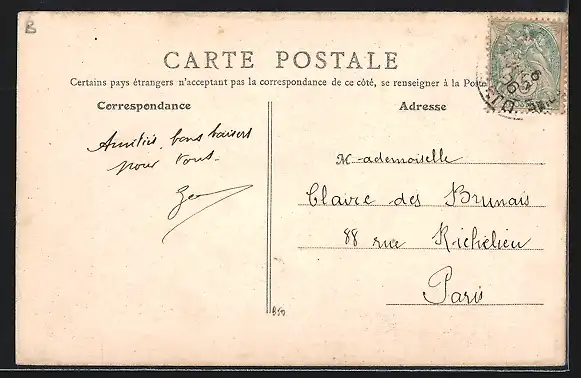 B
CARTE POSTALE
Certains pays étrangers n'acceptant pas la correspondance de ce côté, se renseigner à la Poste
Correspondance
Adresse
Amitiés, bons baisers
pour tous.
M-ademoiselle
Claire des Brunais
88 rue Richelieu
Paris
B50